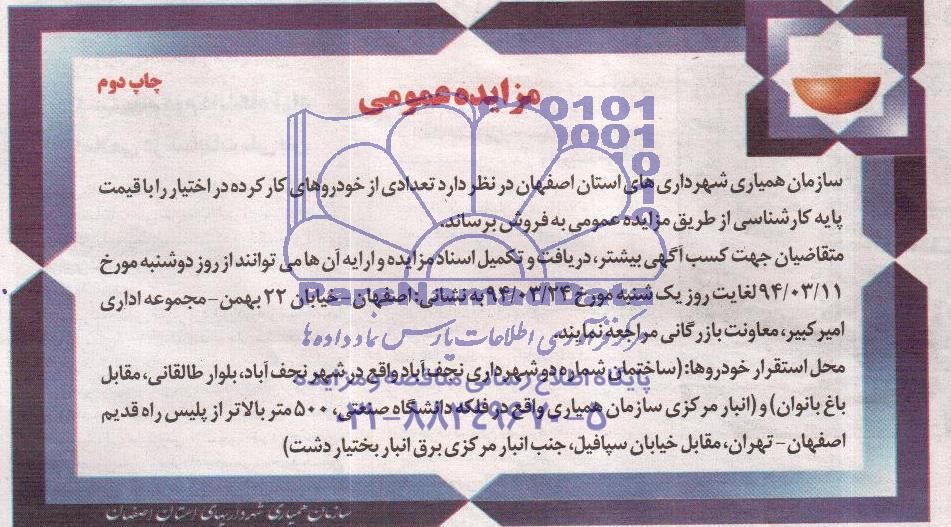 چاپ دوم
مزایده عمومی
0101
0001
10
سازمان همیاری شهرداری های استان اصفهان در نظر دارد تعدادی از خودروهای کارکرده در اختیار را با قیمت
پایه کارشناسی از طریق مزایده عمومی به فروش برساند.
متقاضیان جهت کسب آگهی بیشتر، دریافت و تکمیل اسناد مزایده و ارایه آن ها می توانند از روز دوشنبه مورخ
۹۴/۰۳/۱۱ لغایت روز یک شنبه مورخ ۹۴/۰۳/۲۴ به نشانی: اصفهان - خیابان ۲۲ بهمن - مجموعه اداری
امیرکبیر، معاونت بازرگانی مراجعه نمایند.
مرکز فرآوری اطلاعات پارس نماد داده ها
محل استقرار خودروها: (ساختمان شماره دو شهرداری نجف آباد واقع در شهر نجف آباد، بلوار طالقانی، مقابل
پایگاه اطلاع رسانی مناقصه و مزایده
باغ بانوان) و (انبار مرکزی سازمان همیاری واقع در فلکه دانشگاه صنعتی، ۵۰۰ متر بالاتر از پلیس راه قدیم
۰۲۱-۸۸۳۴۹۶۷۰-۵
اصفهان - تهران، مقابل خیابان سپافیل، جنب انبار مرکزی برق انبار بختیار دشت)
سازمان همیاری شهرداریهای استان اصفهان